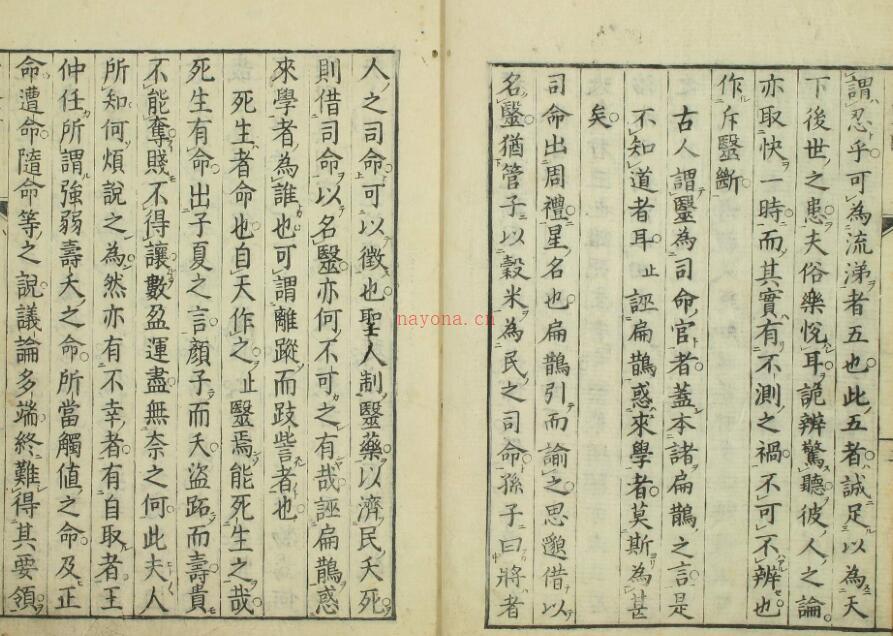 謂忍乎可為流涕者五也此五者誠足以為天
下後世之患夫俗樂悅耳詭辨驚聽彼人之論
亦取快一時而其實有不測之禍不可不辨也
作斥醫斷
古人謂醫為司命官者蓋本諸扁鵲之言是
不知道者耳止誣扁鵲惑來學者莫斯為甚
矣
司命出周禮星名也扁鵲引而諭之思邈借以
名醫猶管子以穀米為民之司命孫子曰將者
人之司命可以徵也聖人制醫藥以濟民夭死
則借司命以名醫亦何不可之有哉誣扁鵲惑
來學者為誰也可謂離蹤而跂訾者也
死生者命也自天作之止醫焉能死生之哉
死生有命出子夏之言顏子而夭盜跖而壽貴
不能奪賤不得讓數盈運盡無奈之何此夫人
所知何煩說之為然亦有不幸者有自取者王
仲任所謂強弱壽夭之命所當觸值之命及正
命遭命隨命等之說議論多端終難得其要領
nayona.cn